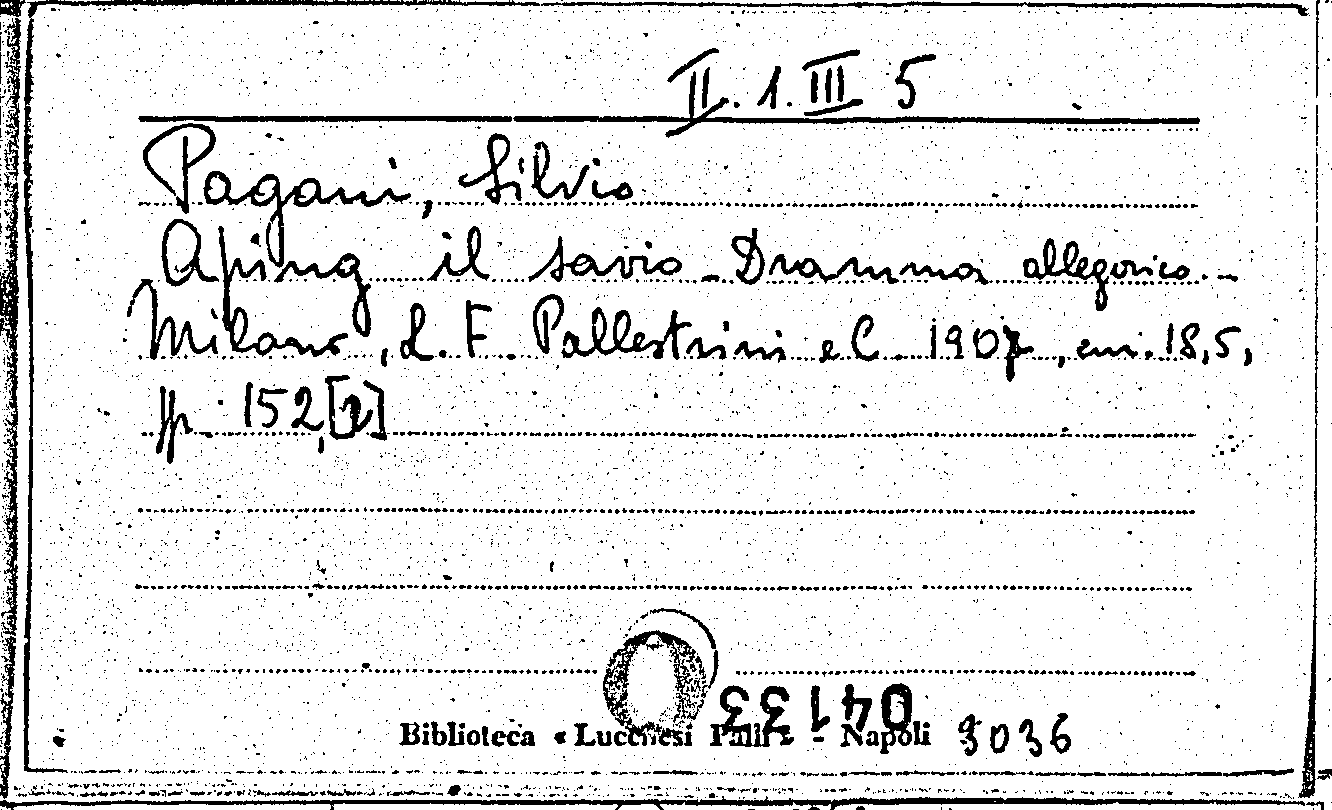 II. 1. III 5
Pagani, Silvio
Aping il savio - Dramma allegorico.-
Milano, L. F. Pallestrini e C. 1907, cm. 18,5,
pp. 152,[2]
04133
Biblioteca « Lucchesi Palli » - Napoli 9036